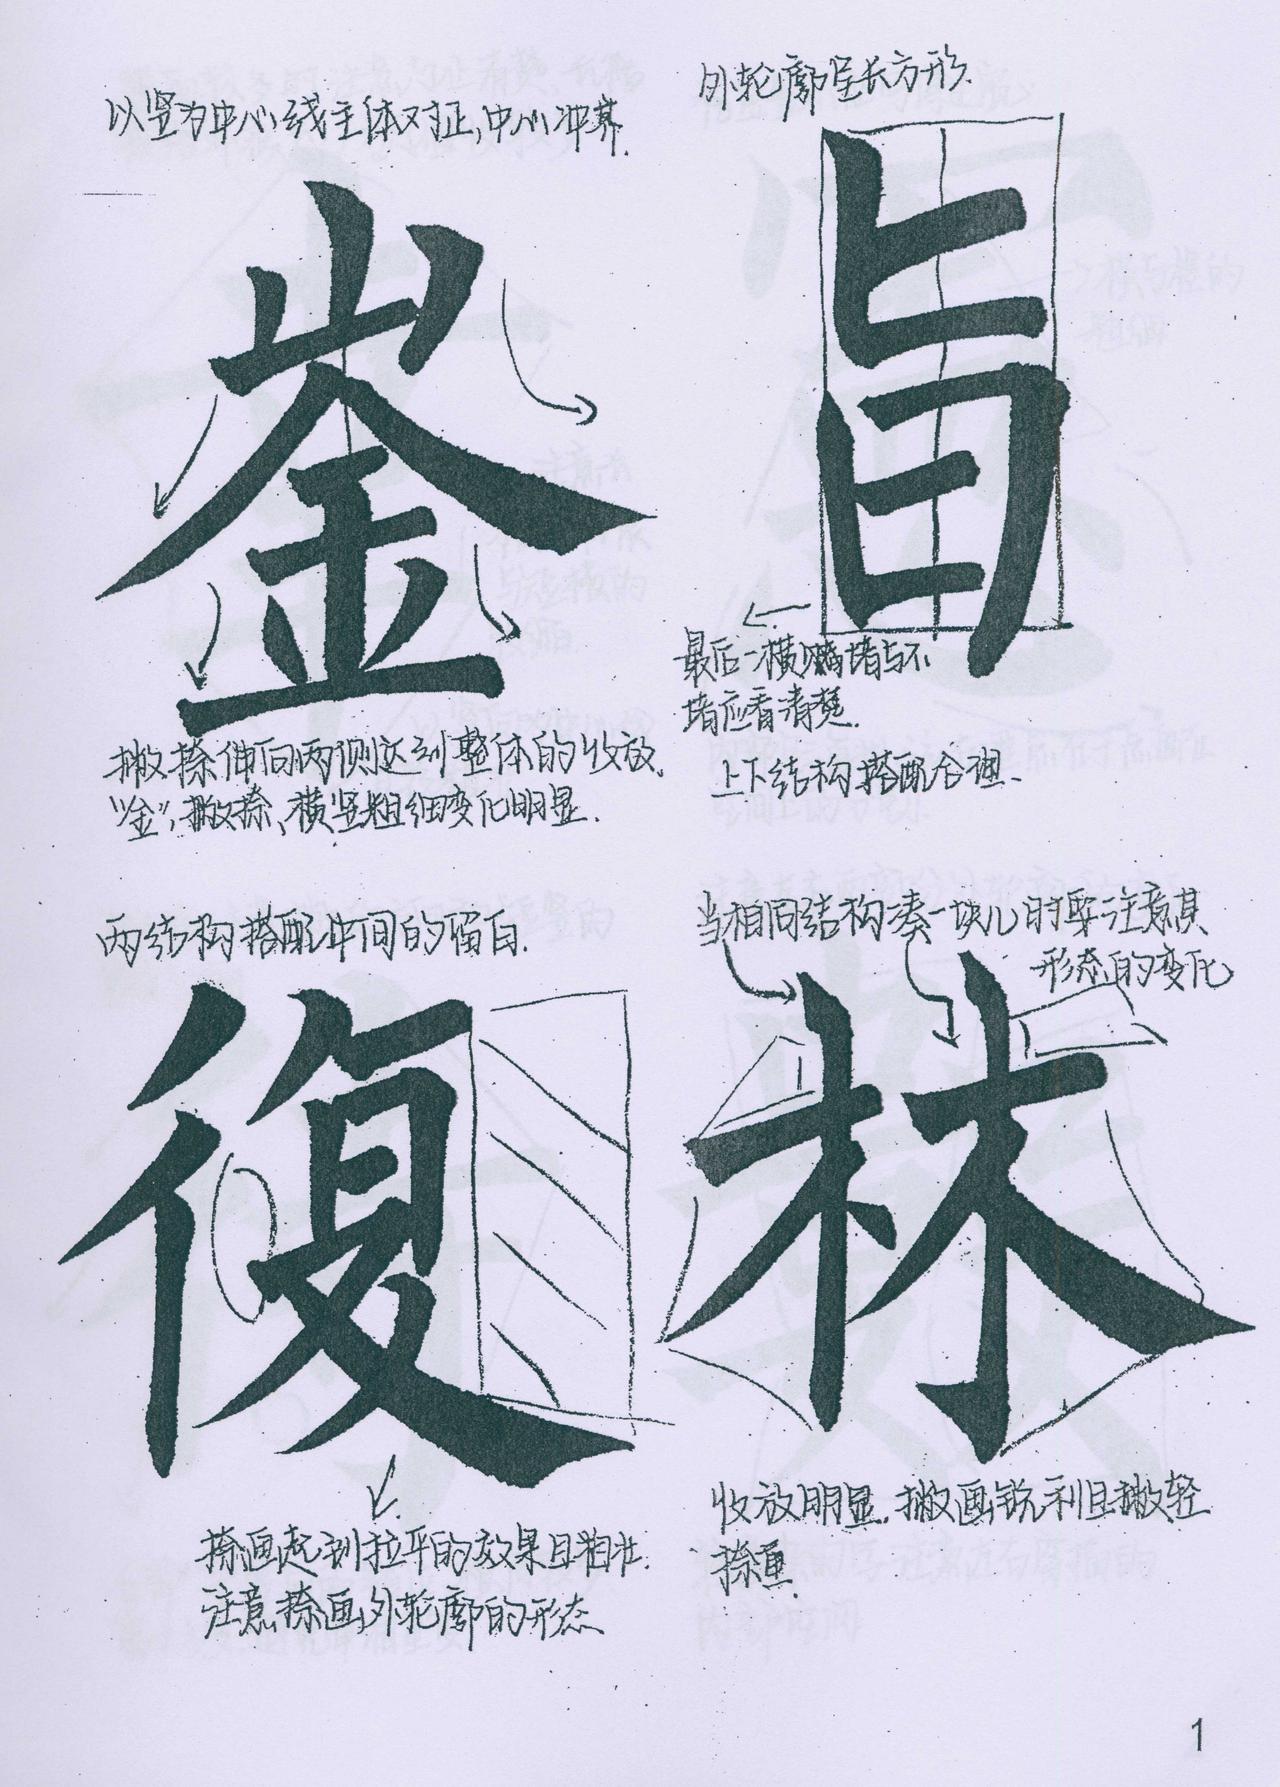 以竖为中心线主体对正,中心冲齐.
崟
撇捺伸向两侧达到整体的收放.
"金",撇捺、横竖粗细变化明显.
外轮廓呈长方形.
旨
最后一横 堵与不
堵应看清楚.
上下结构搭配合理.
两结构搭配中间的留白.
復
捺画起到拉平的效果且粗壮.
注意捺画外轮廓的形态
当相同结构凑一块儿时要注意其
形态的变化
林
收放明显.撇画锐利且撇轻
捺重.
1